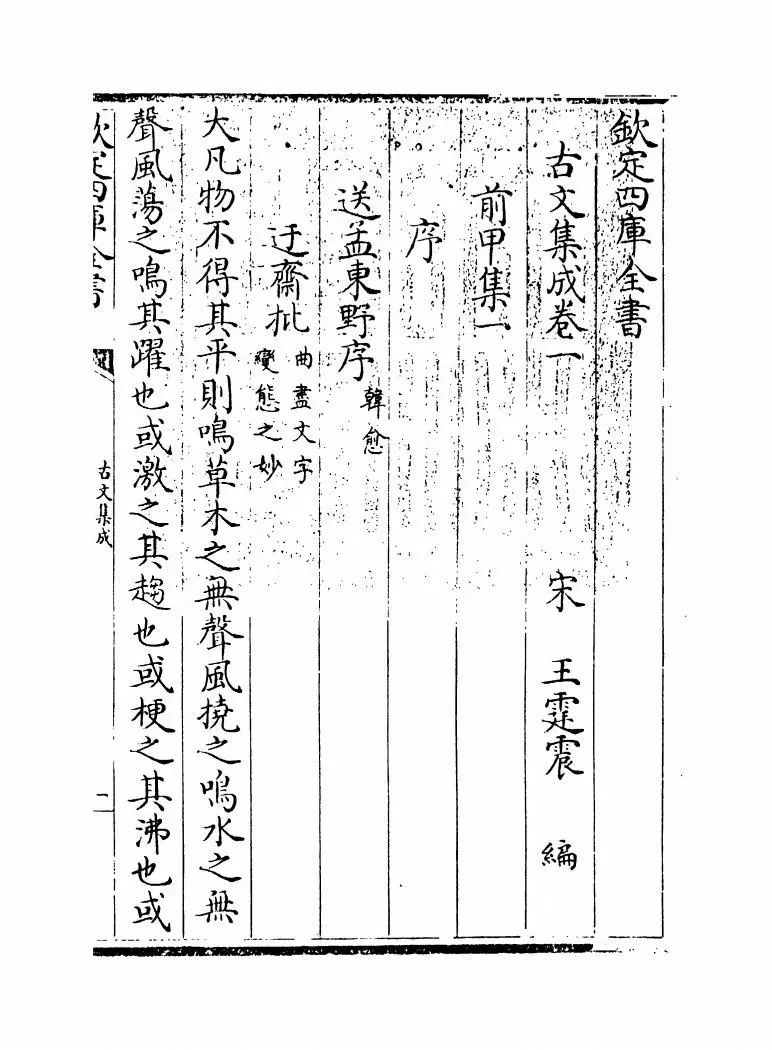 欽定四庫全書
古文集成卷一　宋　王霆震　編
前甲集一
序
送孟東野序　韓愈
迂齋批　曲盡文字變態之妙
大凡物不得其平則鳴草木之無聲風撓之鳴水之無
聲風蕩之鳴其躍也或激之其趨也或梗之其沸也或
欽定四庫全書
古文集成
一